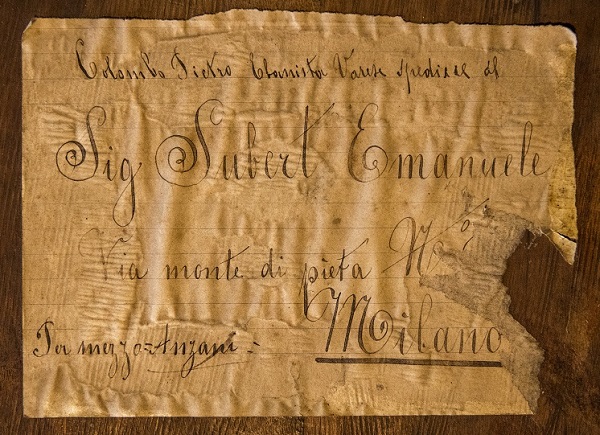 Colombo Pietro Ebanista Varese spedisce al
Sig Subert Emanuele
Via monte di pieta N°
Milano
Per mezzo Anzani